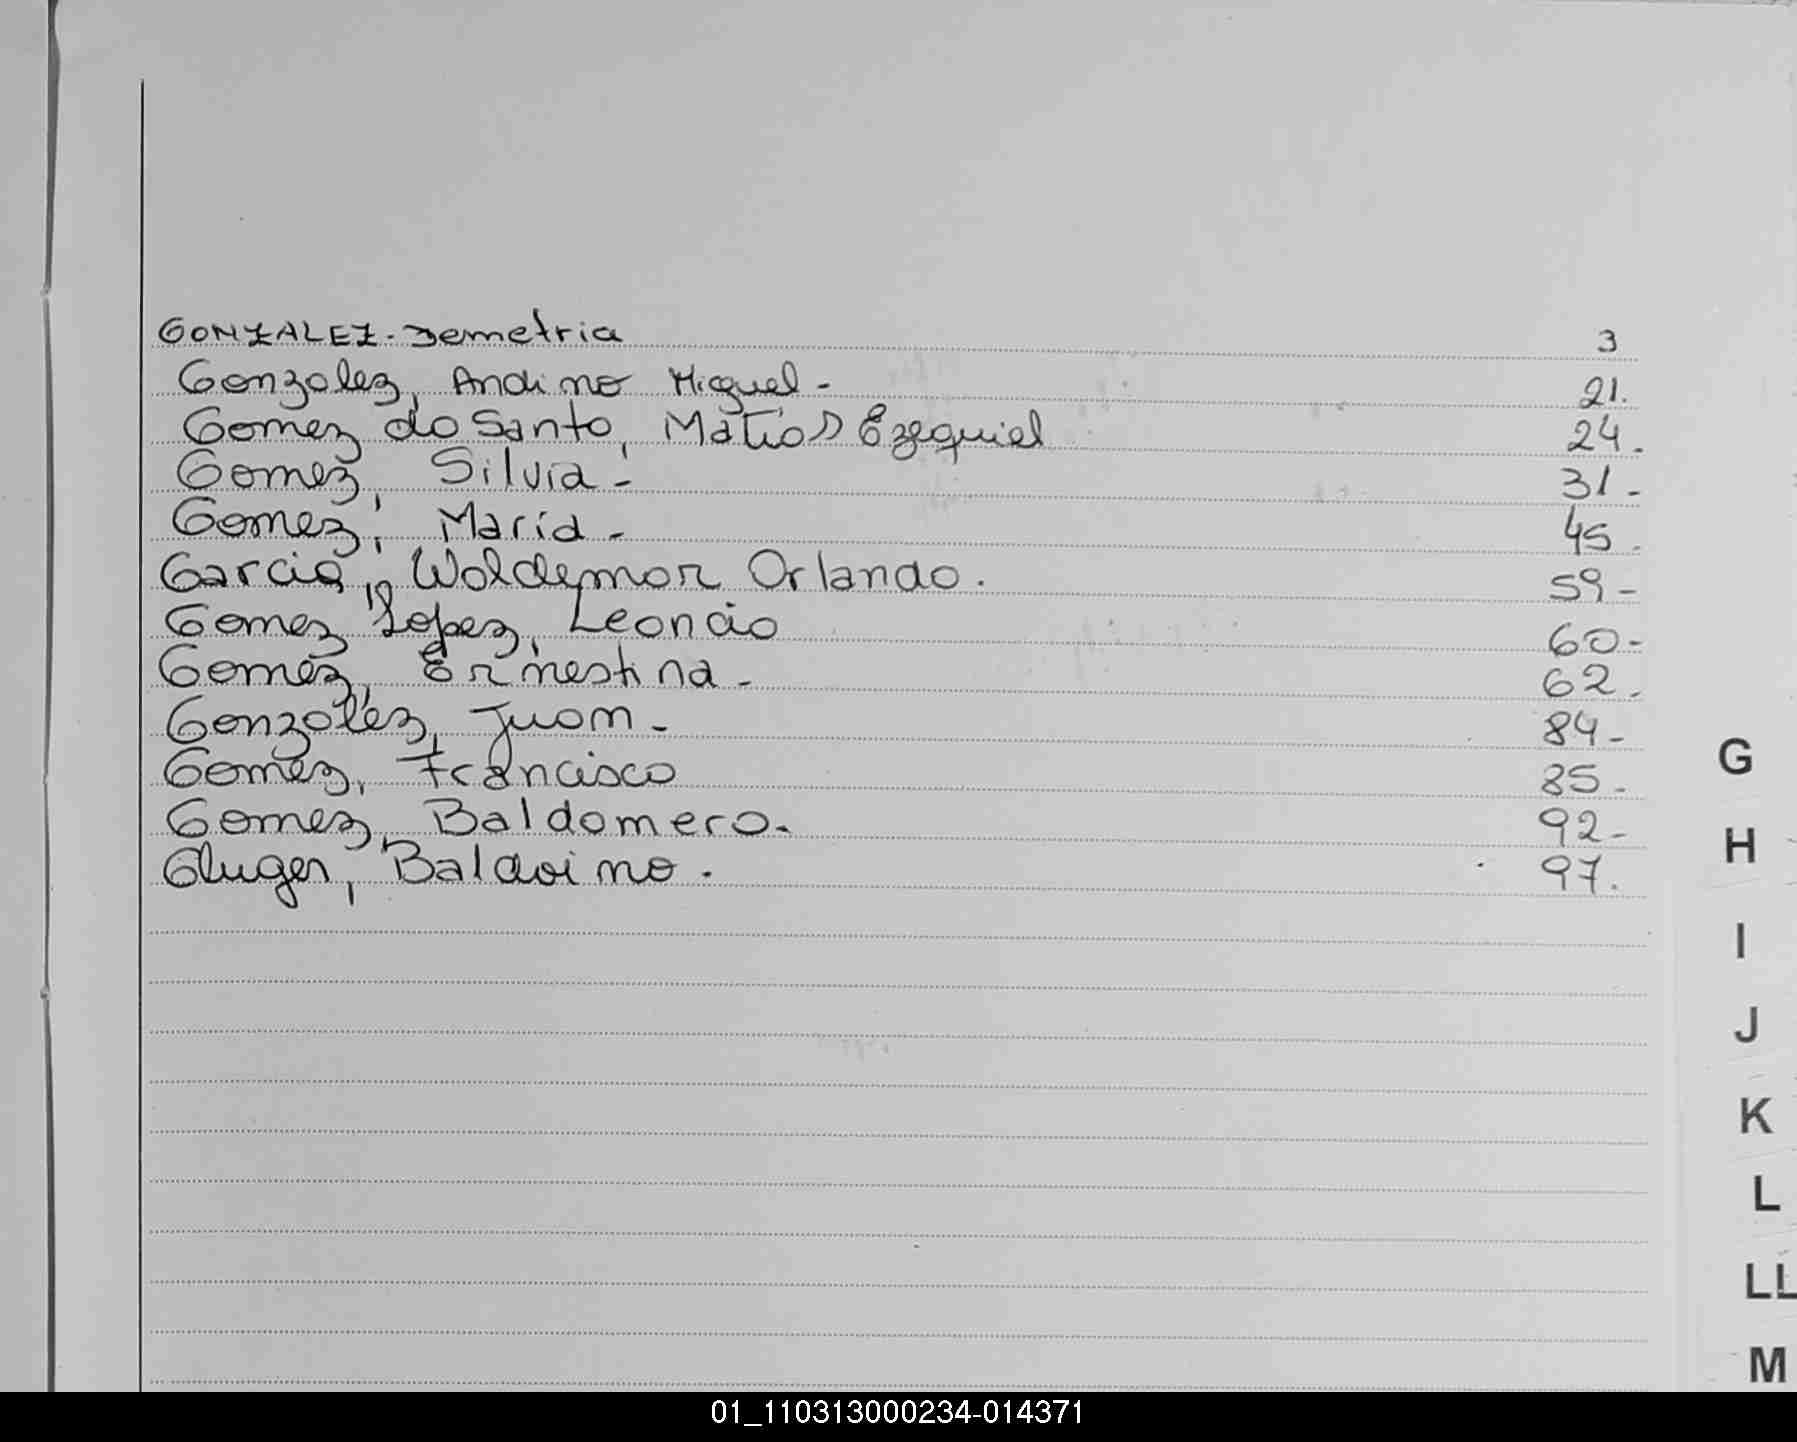 GONZALEZ. Demetria 3
Gonzalez, Andino Miguel - 21.
Gomez do Santo, Matias Ezequiel 24.
Gomez, Silvia - 31 -
Gomez, María - 45.
Garcia, Woldemar Orlando. 59 -
Gomez Lopez, Leoncio 60 -
Gomez, Ernestina - 62.
Gonzalez, Juan - 84 -
Gomez, Francisco 85 -
Gomez, Baldomero. 92 -
Gluger, Baldoino. 97.
G
H
I
J
K
L
LL
M
01_110313000234-014371